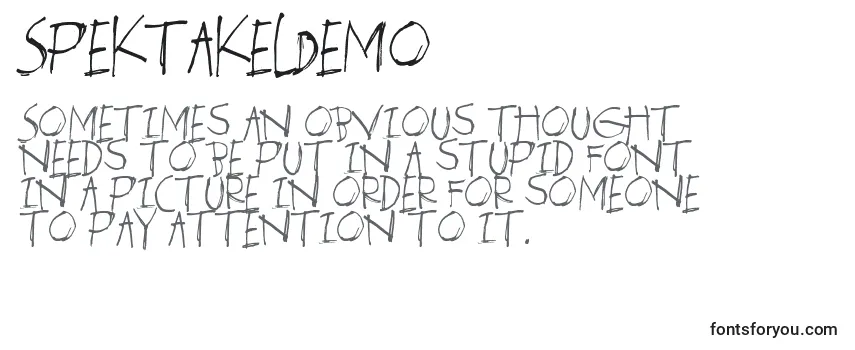 SPEKTAKELDEMO
SOMETIMES AN OBVIOUS THOUGHT
NEEDS TO BE PUT IN A STUPID FONT
IN A PICTURE IN ORDER FOR SOMEONE
TO PAY ATTENTION TO IT.
fontsforyou.com